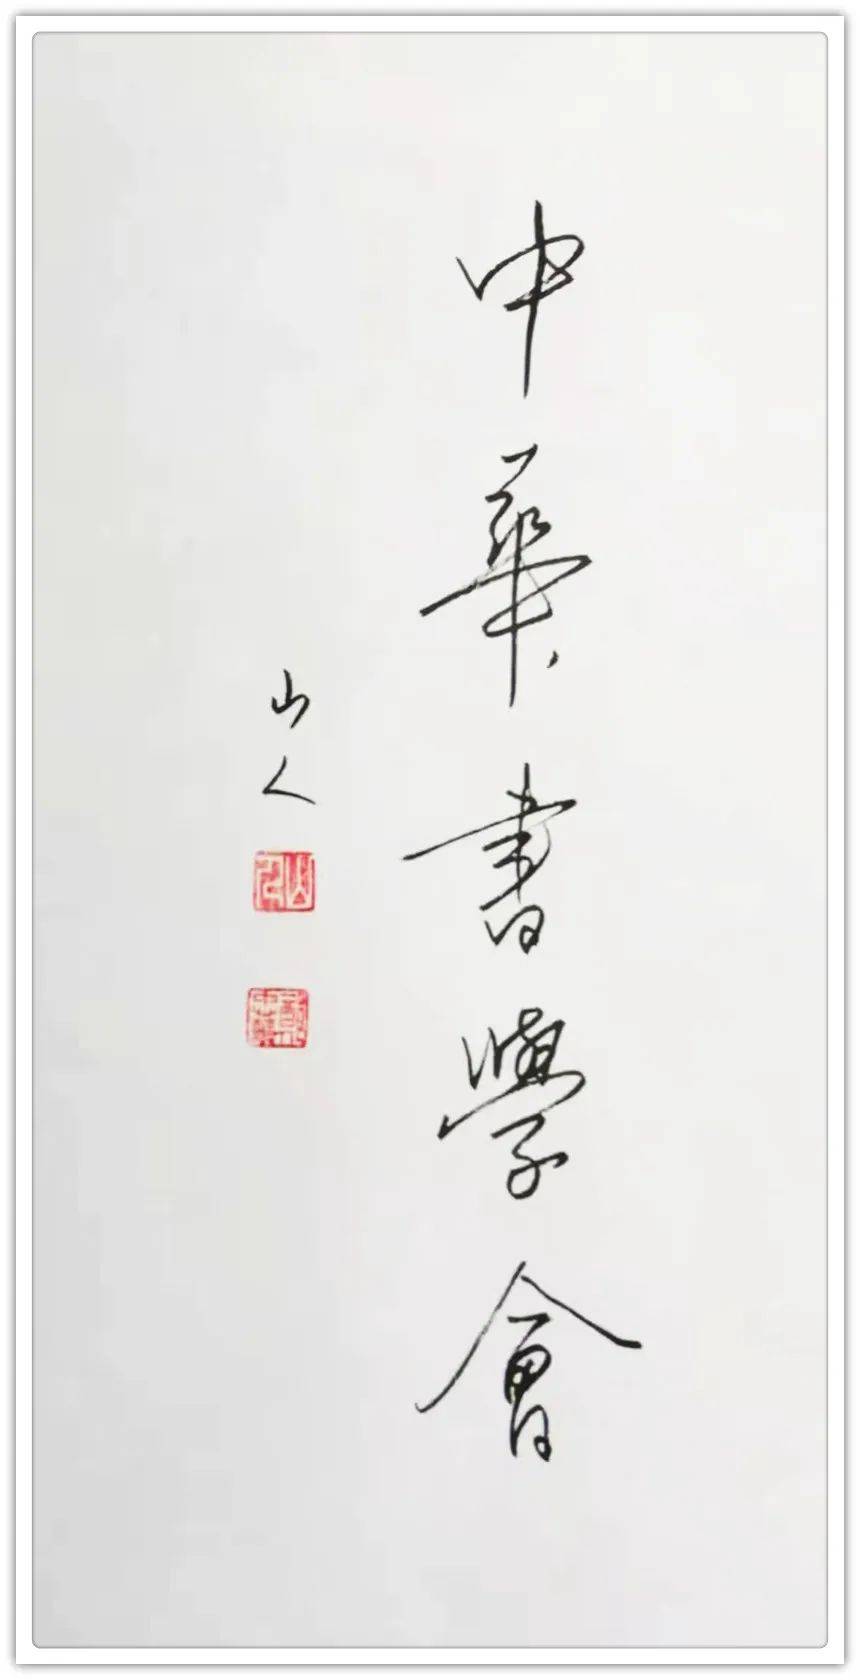 中華書學會
山人